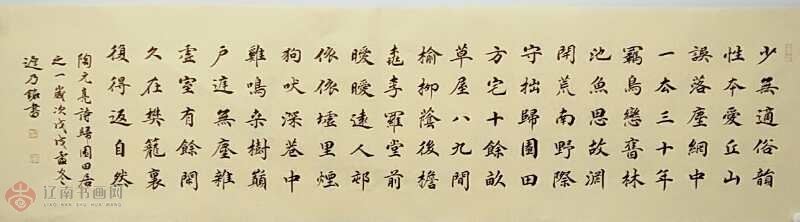 少無適俗韻
性本愛丘山
誤落塵網中
一去三十年
羈鳥戀舊林
池魚思故淵
開荒南野際
守拙歸園田
方宅十餘畝
草屋八九間
榆柳蔭後檐
桃李羅堂前
曖曖遠人邨
依依墟里煙
狗吠深巷中
雞鳴桑樹巔
戶庭無塵雜
虛室有餘閒
久在樊籠裏
復得返自然
陶元亮詩歸園田居
之一歲次戊戌孟冬
乃書
辽南书画网
LIAO NAN SHU HUA WANG